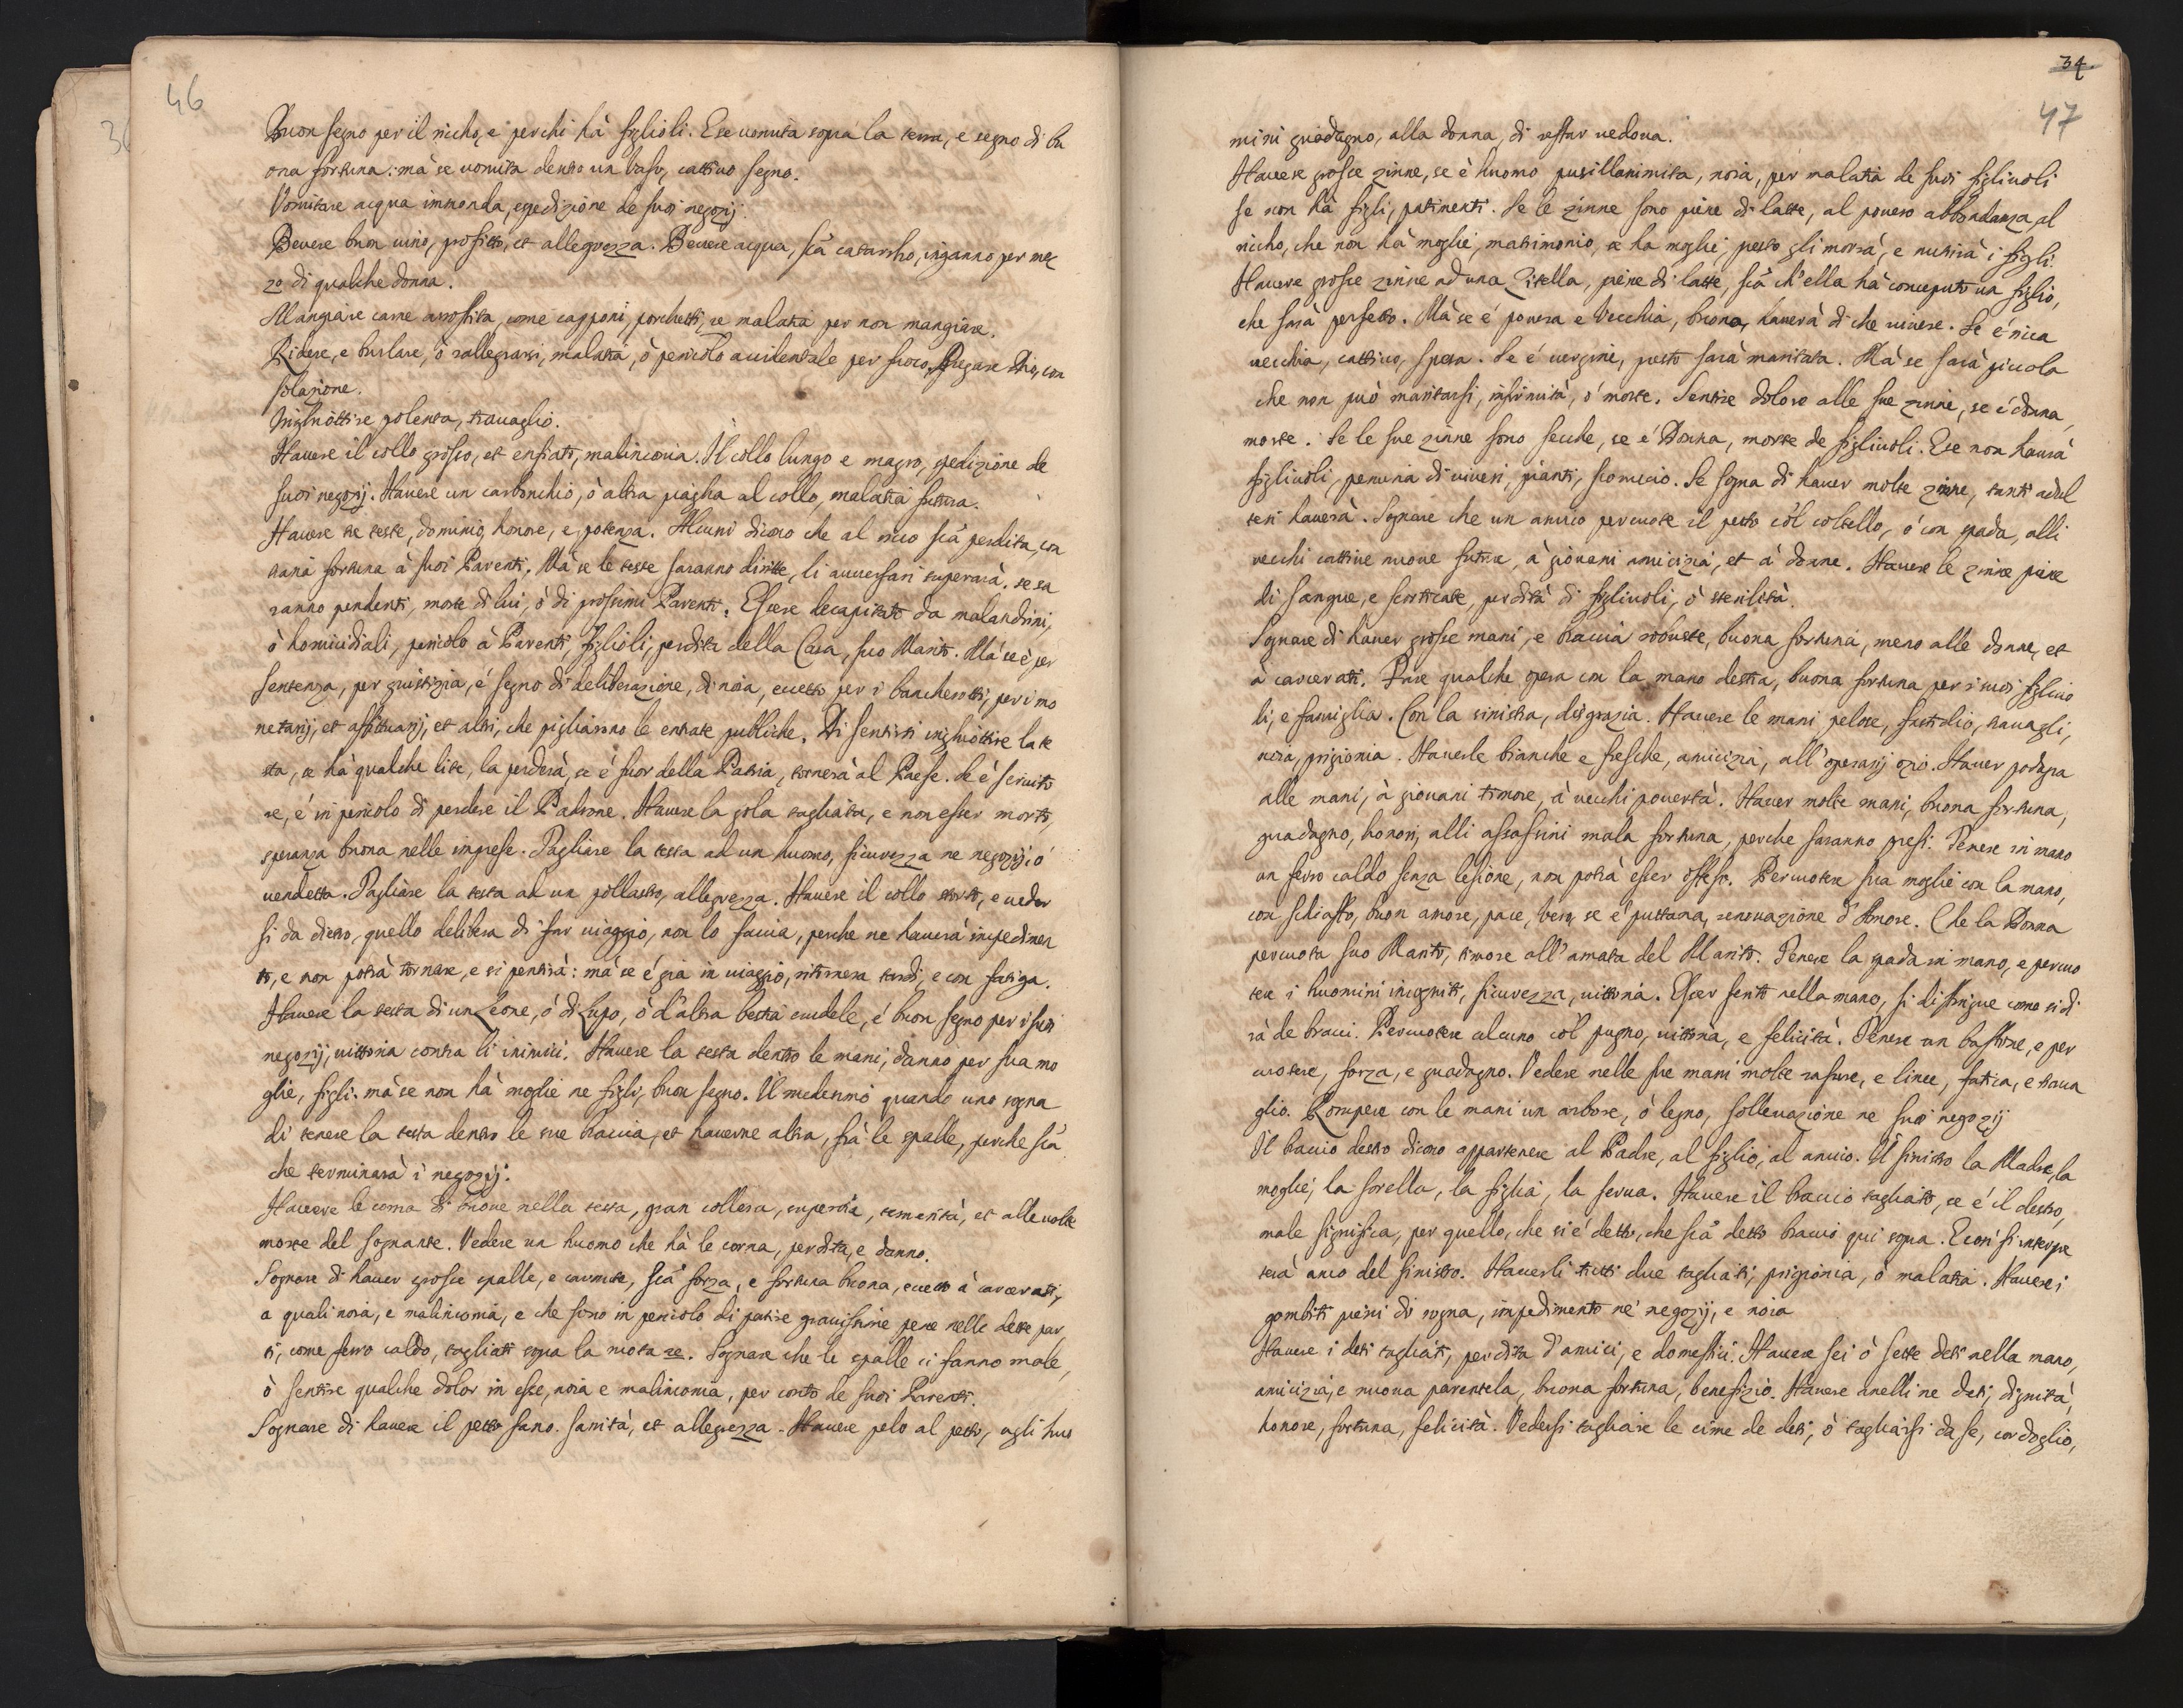 46
Buon segno per il riccho, e per chi hà figlioli. E se vomita sopra la terra, e segno di bu
ona fortuna: mà se vomita dentro un vaso, cattivo segno.
Vomitare acqua immonda, espedizione de suoi negozij.
Bevere buon vino, profitto, et allegrezza. Bevere acqua, sia catarrho, inganno per me
zo di qualche donna.
Mangiare carne arrostita, come capponi, porchetti, se malatia per non mangiare.
Ridere, e burlare, ò rallegrarsi, malatia, ò pericolo accidentale per fuoco. Pregare Dio, con
solazione.
Inghiottire polenta, travaglio.
Havere il collo grosso, et enfiato, malinconia. Il collo lungo e magro, spedizione de
suoi negozij. Havere un carbonchio, ò altra piagha al collo, malatia futura.
Havere tre teste, dominio, honore, e, potenza. Alcuni dicono che al ricco sia perdita, con
traria fortuna à suoi Parenti. Mà se le teste saranno diritte, li avversari superarà, se sa
ranno pendenti, morte di lui, ò di prossimi Parenti. Essere decapitato da malandrini,
ò homicidiali, pericolo à Parenti, figlioli, perdita della Casa, suo Marito. Mà se è per
sentenza, per giustizia, é segno di deliberazione, di noia, eccetto per i bancherotti, per i mo
netarij, et affittuarij, et altri, che pigliarono le entrate publiche. Di sentirsi inghiottire la te
sta, se hà qualche lite, la perderà, se é fuor della Patria, tornerà al Paese. Se è servito
re, é in pericolo di perdere il Padrone. Havere la gola tagliata, e non esser morto,
speranza buona nelle imprese. Tagliare la testa ad un huomo, sicurezza ne negozij ó
vendetta. Tagliare la testa ad un pollastro, allegrezza. Havere il collo storto, e veder
si da dietro, quello delibera di far viaggio, non lo faccia, perche ne haverà impedimen
to, e non potrà tornare, e si pentirà: mà se é già in viaggio, ritornera tardi, e con fatiga.
Havere la testa di un Leone, ó di Lupo, ò d'altra bestia crudele, é buon segno per i suoi
negozij, vittoria contra li inimici. Havere la testa dentro le mani, danno per sua mo
glie, figli. mà se non hà moglie ne figli, buon segno. Il medesimo quando uno sogna
di tenere la testa dentro le sue braccia, et haverne altra, frà le spalle, perche sia
che terminarà i negozij.
Havere le corna di buove nella testa, gran collera, superbia, temerità, et alle volte
morte del sognante. Vedere un huomo che hà le corna, perdita, e danno.
Sognare di haver grosse spalle, e carnute, sia forza, e fortuna buona, eccetto à carcerati,
a quali noia, e malinconia, e che sono in pericolo di patire gravissime pene nelle dette par
ti, come ferro caldo, tagliati sopra la rota re. Sognare che le spalle ci fanno male,
ò sentire qualche dolor in esse, noia e malinconia, per conto de suoi Parenti.
Sognare di havere il petto sano. sanità, et allegrezza. Havere pelo al petto, agli huo
34
47
mini guadagno, alla donna, di restar vedova.
Havere grosse zinne, se è huomo pusillanimita, noia, per malatia de suoi figliuoli
se non hà figli, patimenti. Se le zinne sono piene di latte, al povero abbondanza, al
riccho, che non hà moglie, matrimonio, se ha moglie, presto gli morrà, e nutrirà i figli.
Havere grosse zinne ad una Zitella, piene di latte, sia ch'ella hà conceputo un figlio,
che sarà perfetto. Mà se é povera e vecchia, buono, haverà di che vivere. Se é ricca
vecchia, cattivo, spera. Se é vergine, presto sarà maritata. Mà se sarà piccola
che non può maritarsi, infirmità, ó morte. Sentire dolore alle sue zinne, se é donna,
morte. Se le sue zinne sono secche, se é Donna, morte de figliuoli. E se non haurà
figliuoli, penuria di viveri, pianti, scorruccio. Se sogna di haver molte zinne, tanti adul
teri haverà. Sognare che un amico percuote il petto col coltello, ó con spada, alli
vecchi cattive nuove future, à giovani amicizia, et à donne. Havere le zinne piene
di sangue, e scorticate, perdità di figliuoli, ò sterilità.
Sognare di haver grosse mani, e braccia robuste, buona fortuna, meno alle donne, et
a carcerati. Fare qualche opera con la mano destra, buona fortuna per i suoi figliuo
li, e famiglia. Con la sinistra, disgrazia. Havere le mani pelose, fastidio, travagli,
noia, prigionia. Haverle bianche e fresche, amicizia, all'operarij ozio. Haver podagra
alle mani, à giovani timore, à vecchi povertà. Haver molte mani, buona fortuna,
guadagno, honori, alli assassini mala fortuna, perche saranno presi. Tenere in mano
un ferro caldo senza lesione, non potrà esser offeso. Percuotere sua moglie con la mano,
con schiaffo, buon amore, pace, vero, se é puttana, renovazione d'Amore. Che la Donna
percuota suo Marito, timore all'amata del Marito. Tenere la spada in mano, e percuo
tere i huomini incogniti, sicurezza, vittoria. Esser ferito nella mano, si distingue come si di
rà de bracci. Percuotere alcuno col pugno, vittoria, e felicità. Tenere un bastone, e per
cuotere, forza, e guadagno. Vedere nelle sue mani molte rasure, e linee, fatica, e trava
glio. Rompere con le mani un arbore, ò legno, sollevazione ne suoi negozij
Il braccio destro dicono appartenere al Padre, al figlio, al amico. Il sinistro la Madre, la
moglie, la sorella, la figlia, la serva. Havere il braccio tagliato, se é il destro,
male significa, per quello, che si é detto, che sia detto braccio qui sopra. E così si interpre
terà anco del sinistro. Haverli tutti due tagliati, prigionia, ò malatia. Havere i
gombiti pieni di rogna, impedimento ne' negozij, e noia
Havere i deti tagliati, perdita d'amici, e domestici. Havere sei ò sette deti nella mano,
amicizia, e nuova parentela, buona fortuna, benefizio. Havere anelli ne deti, dignità,
honore, fortuna, felicità. Vedersi tagliare le cime de deti, ò tagliarsi da se, cordoglio,